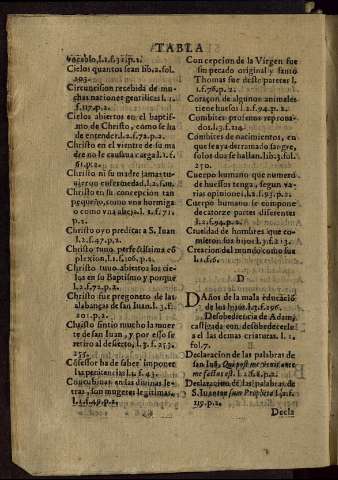 TABLA
vocablo, l.1.f.321.p.2.
Cielos quantos sean lib.2.fol.
203.
Circuncision recebida de mu-
chas naciones gentilicas l.1.
f.117.p.2.
Cielos abiertos en el baptis-
mo de Christo, como se ha
de entender. l.2.f.72.p.2.
Christo en el vientre de su ma
dre no le causaua carga l.1.f.
61.p.2.
Christo ni su madre jamas tu-
uieron enfermedad. l.2.f.
Christo en su concepcion tan
pequeño, como vna hormiga
o como vna abeja. l.1.f.71.
p.2.
Christo oyo predicar a S. Iuan
l.2.f.47.p.2.
Christo tuuo perfectissima cõ
plexion, l.1.f.106, p.2.
Christo tuuo abiertos los cie-
los en su Baptismo y porque
l.2.f.72.p.2.
Christo fue pregonero de las
alabanças de san Iuan. l.3.f.
201.p.2.
Christo sintio mucho la muer
te de san Iuan, y por esso se
retiro al desierto, l.3.f.253.
255.
Cõfessor ha de saber imponer
las penitencias l.1.f.43.
Concubinas en las diuinas le-
tras, son mugeres legitimas.
l.3.f.49.p.2.
Concepcion de la Virgen fue
sin pecado original y santo
Thomas fue deste parecer l.
1.f.96.p.2.
Coraçon de algunos animales
tiene huesos l.2.f.94.p.2.
Combites profanos reproua-
dos. l.3.f.210.
Combites de nacimientos, en
que se aya derramado sangre,
solos dos se hallan. lib.3.fol.
230.
Cuerpo humano que numero
de huessos tenga, segun va-
rias opiniones, l.2.f.93.p.2.
Cuerpo humano se compone
de catorze partes diferentes
l.2.f.94.p.2.
Crueldad de hombres que co-
mieron sus hijos l.3.f.213.
Creacion del mundo como fue
l.1.f.6.
D
DAños de la mala educaciõ
de los hijos. l.3.f.196.
Desobediencia de Adam,
castigada con desobedecerle
a el las demas criaturas. l.1.
fol.7.
Declaracion de las palabras de
san Iuã, Qui post me venit ante
me factus est. l.2.f.8.p.2.
Declaracion de las palabras de
S. Iuan
119.p.2.
Decla